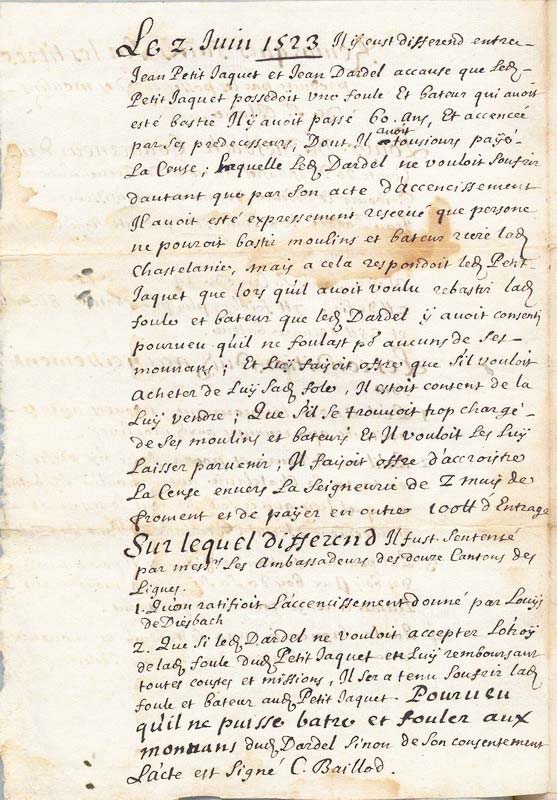 Le 2. Juin 1523 Il y eust differend entre
Jean Petit Jaquet et Jean Dardel accause que Led.
Petit Jaquet possedoit vne foule Et bateur qui avoit
esté bastie Il y avoit passé 60. ans, Et accencée
par ses predecesseurs, Dont Il avoit tousiours payé
La Cense; Laquelle Led. Dardel ne vouloit soufrir
dautant que par son acte d'accencissement
Il avoit esté expressement reservé que persone
ne pouroit bastir moulins et bateur riere lad.
Chastelanie, mais a cela respondoit led. Petit
Jaquet que lors qu'il avoit voulu rebastir lad.
foule et bateur que led. Dardel y avoit consenti
pourueu qu'il ne foulast po.r aucuns de ses
monnans; Et Luy faisoit offre que s'il vouloit
acheter de Luy sad. fole, Il estoit consent de la
Luy vendre; Que s'il se trouvoit trop chargé
de ses moulins et bateurs Et Il vouloit Les Luy
Laisser paruenir, Il faisoit offre d'accroistre
La Cense envers La Seigneurie de 2 muys de
froment et de payer en outre 100 lt d'Entrage
Sur lequel differend Il fust Sentencé
par mess.rs Les Ambassadeurs des douze Cantons des
Ligues.
1. Quon ratifioit L'accencissement donné par Louys
de Diesbach
2. Que si led. Dardel ne vouloit accepter Lotroy
de lad. foule dud. Petit Jaquet en Luy remboursant
toutes coustes et missions, Il sera tenu soufrir lad.
foule et bateur aud. Petit Jaquet. Pourueu
qu'il ne puisse batre et fouler aux
monnans dud. Dardel sinon de son consentement
L'acte est signé C. Baillod.